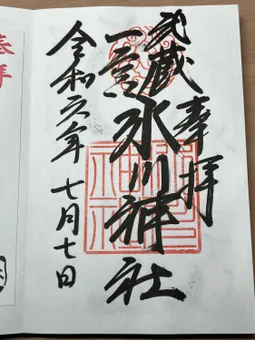 奉拝
武蔵
一宮
氷川神社
令和元年七月七日
奉拝